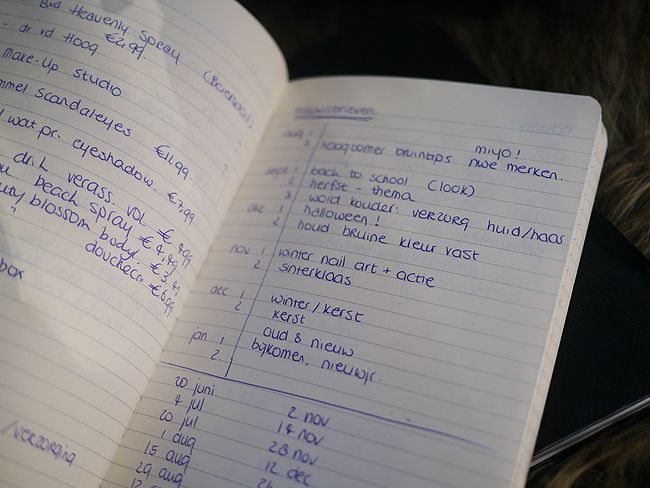 Heavenly Spray (Beierwald)
dr. vd Hoog €2,99.
make-up studio
scandaleyes €11,99
wat pr. eyeshadow. €7,99
dr. L verass. vol. €
beach spray € 4,49
blossom body €3,
douchecr €6,99
box
/verzorging
Nieuwsbrieven
aug 1 miyo!
2 hoogzomer bruintips nwe merken.
sept 1 back to school (look)
2 herfst - thema
3 word kouder: verzorg huid/haar
okt 1 halloween!
2 houd bruine kleur vast
nov 1 winter nail art + actie
2 sinterklaas
dec 1 winter/kerst
2 kerst
oud & nieuw
jan 1 bijkomen, nieuwjr.
2
20 juni 2 nov
4 jul 14 nov
20 jul 28 nov
1 aug 12 dec
15 aug
29 aug